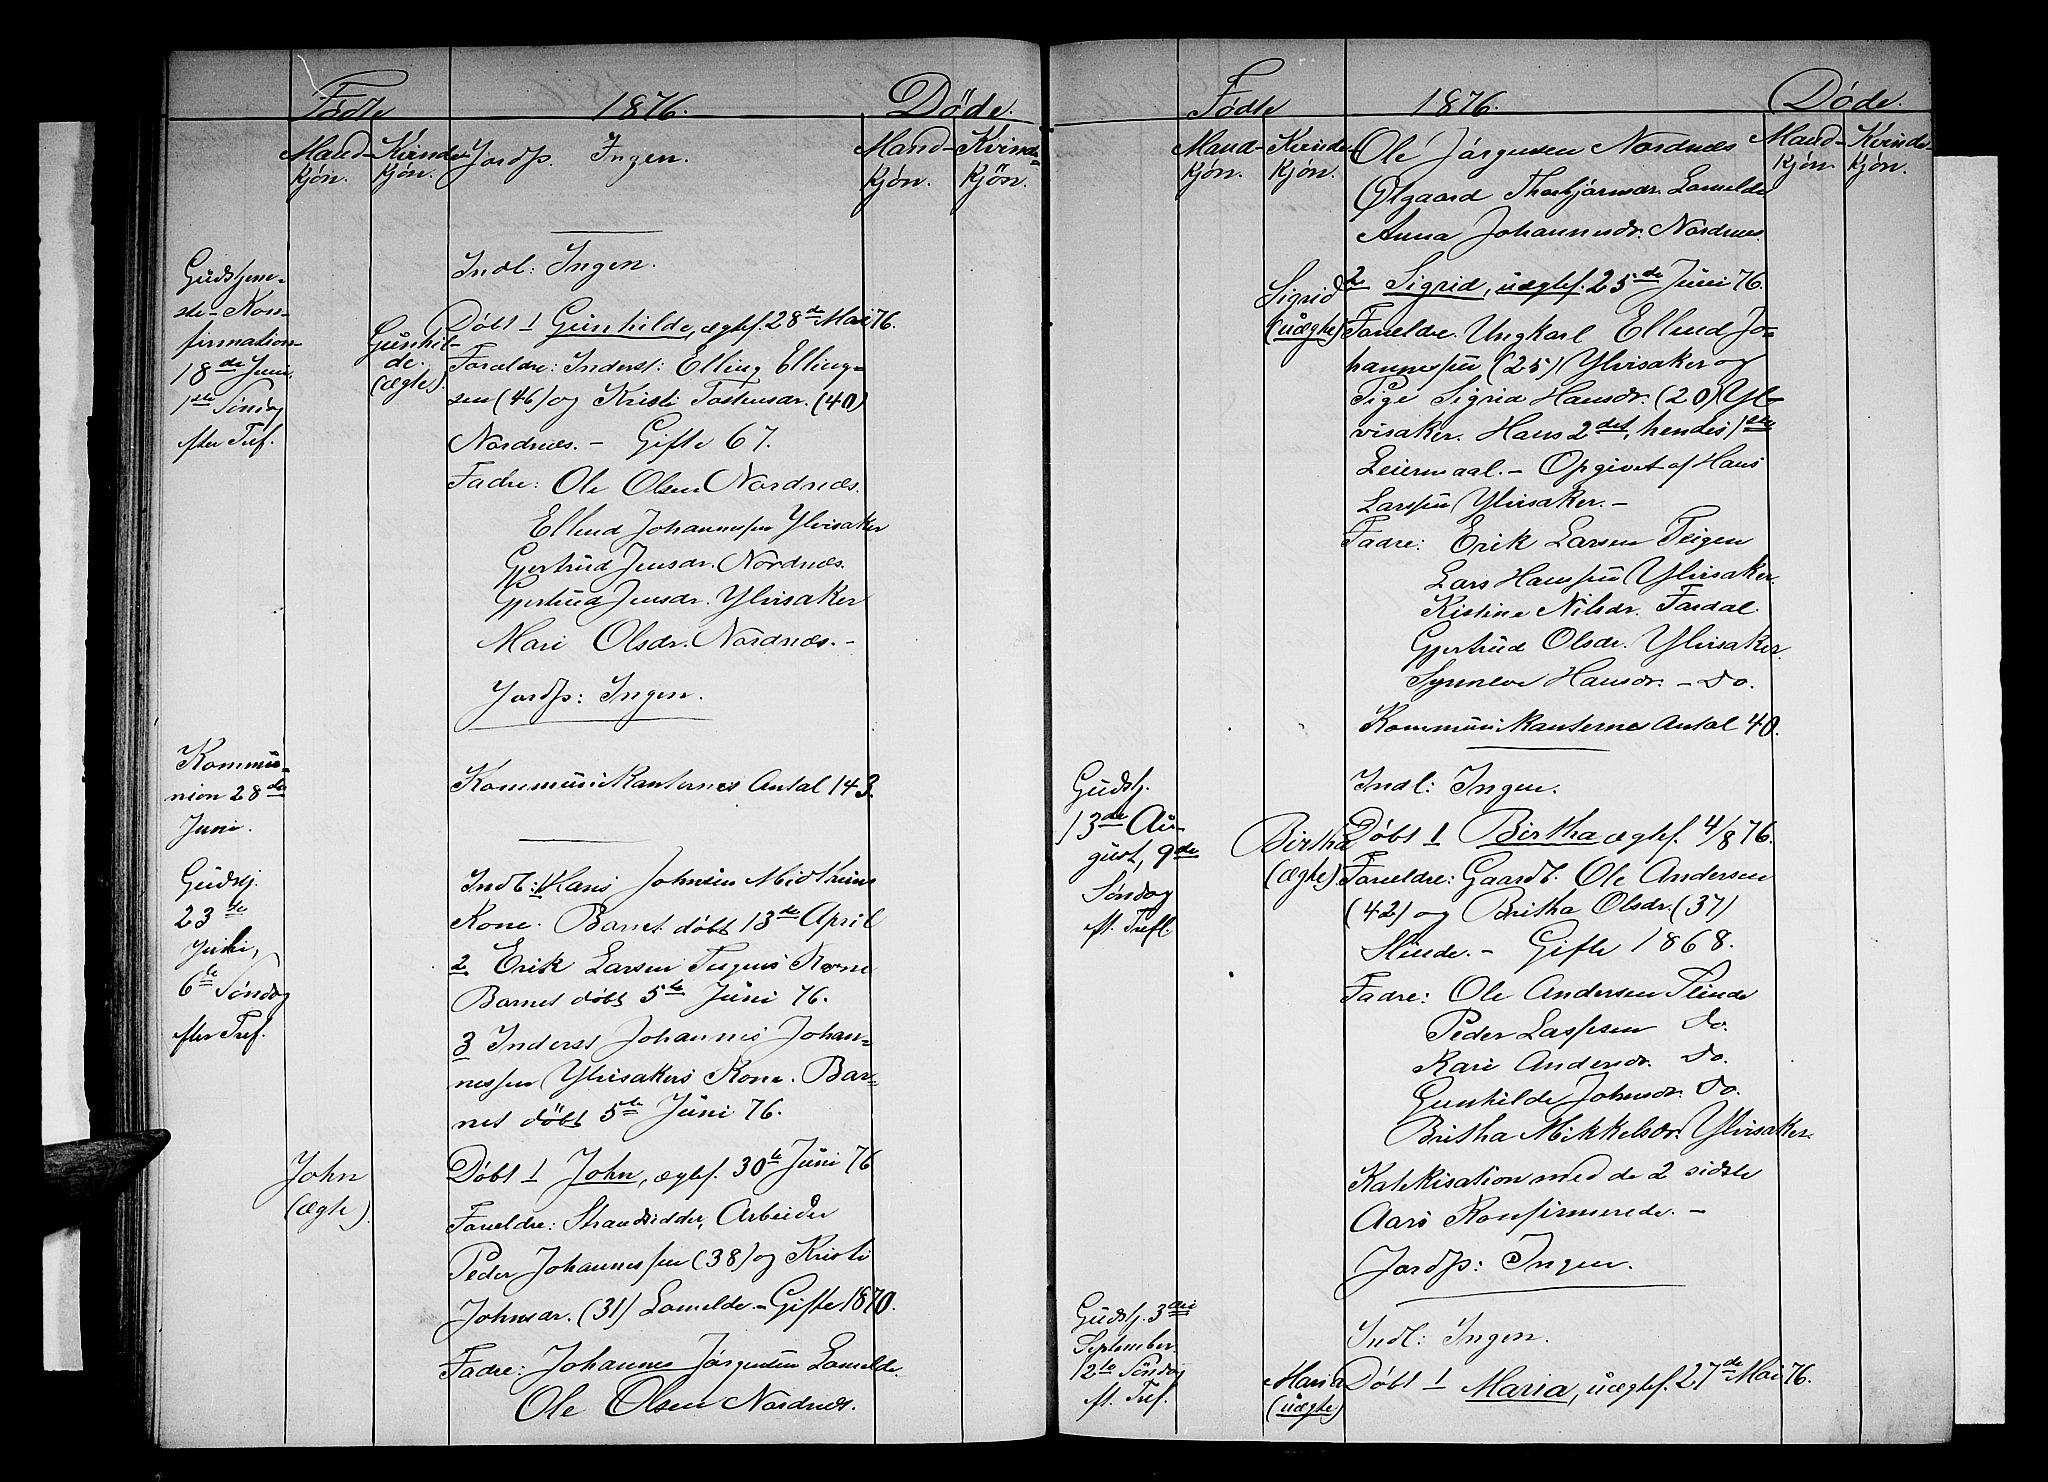 Födte 1876. Döde.
Mand- Kvinde- Jordf. Ingen. Mand- Kvinde-
kjön. kjön. kjön. kjön.
Indl: Ingen.
Gudstjene-
ste - Kon-
firmation
18de Juni
1ste Söndag
efter Tref.
Gunhil-
de.
(ægte)
Döbt 1 Gunhilde, ægtef. 28de Mai 76.
Foreldre: Inderst: Elling Elling-
sen (46) og Kristi Tostensdr. (40)
Nordnæs. - Gifte 67.
Fadre: Ole Olsen Nordnæs.
Ellend Johannessen Ylvisaker
Gjertrud Jensdr. Nordnæs.
Gjertrud Jensdr. Ylvisaker
Mari Olsdr. Nordnæs. -
Jordf: Ingen.
Kommu-
nion 28de
Juni.
Kommunikanternes Antal 143.
Gudstj.
23de
Juli,
6te Söndag
efter Tref.
Indl: 1 Hans Johnsen
Kone. Barnet döbt 13de April
2 Erik Larsen Teigens Kone
Barnet döbt 5te Juni 76.
3 Inderst Johannes Johan-
nessen Ylvisakers Kone. Bar-
net döbt 5te Juni 76.
John
(ægte).
Döbt 1 John, ægtef. 30te Juni 76
Foreldre: Strandsidder, Arbeider
Peder Johannessen (38) og Kristi
Johnsdr. (31) Lomelde. - Gifte 1870.
Fadre: Johannes Jörgensen Lomelde.
Ole Olsen Nordnæs.
Födte 1876. Döde.
Mand- Kvinde- Mand- Kvinde-
kjön. kjön. kjön. kjön.
Ole Jörgensen Nordnæs
Ølgaard Thorbjörnsdr. Lomelde
Anna Johannesdr. Nordnæs.
Sigrid
(uægte)
2 Sigrid, uægtef. 25de Juni 76.
Foreldre. Ungkarl Ellend Jo-
hannessen (25) Ylvisaker og
Pige Sigrid Hansdr. (20) Yl-
visaker. Hans 2det, hendes 1ste
Leiermaal. - Opgivet af Hans
Larssen Ylvisaker. -
Fadre: Erik Larsen Teigen
Lars Hanssen Ylvisaker.
Kistine Nilsdr. Fardal.
Gjertrud Olsdr. Ylvisaker.
Synneve Hansdr. - Do.
Kommunikanternes Antal 40.
Gudstj.
13de Au-
gust, 9de
Söndag
ft. Trefl.
Indl: Ingen.
Birtha
(ægte)
Döbt 1 Birtha ægtef. 4/8 76.
Foreldre: Gaardb. Ole Andersen
(42) og Britha Olsdr. (37)
Slinde. - Gifte 1868.
Fadre: Ole Andersen Slinde
Peder Lassesen Do.
Kari Andersdr. Do.
Gunhilde Johnsdr. Do.
Britha Mikkelsdr. Ylvisaker.
Katekisation med de 2 sidste
Aars Konfirmerede. -
Jordf: Ingen.
Gudstj. 3die
September.
12te Söndag
ft. Tref.
Indl: Ingen.
Maria
(uægte)
Döbt 1 Maria, uægtef. 27de Mai 76.